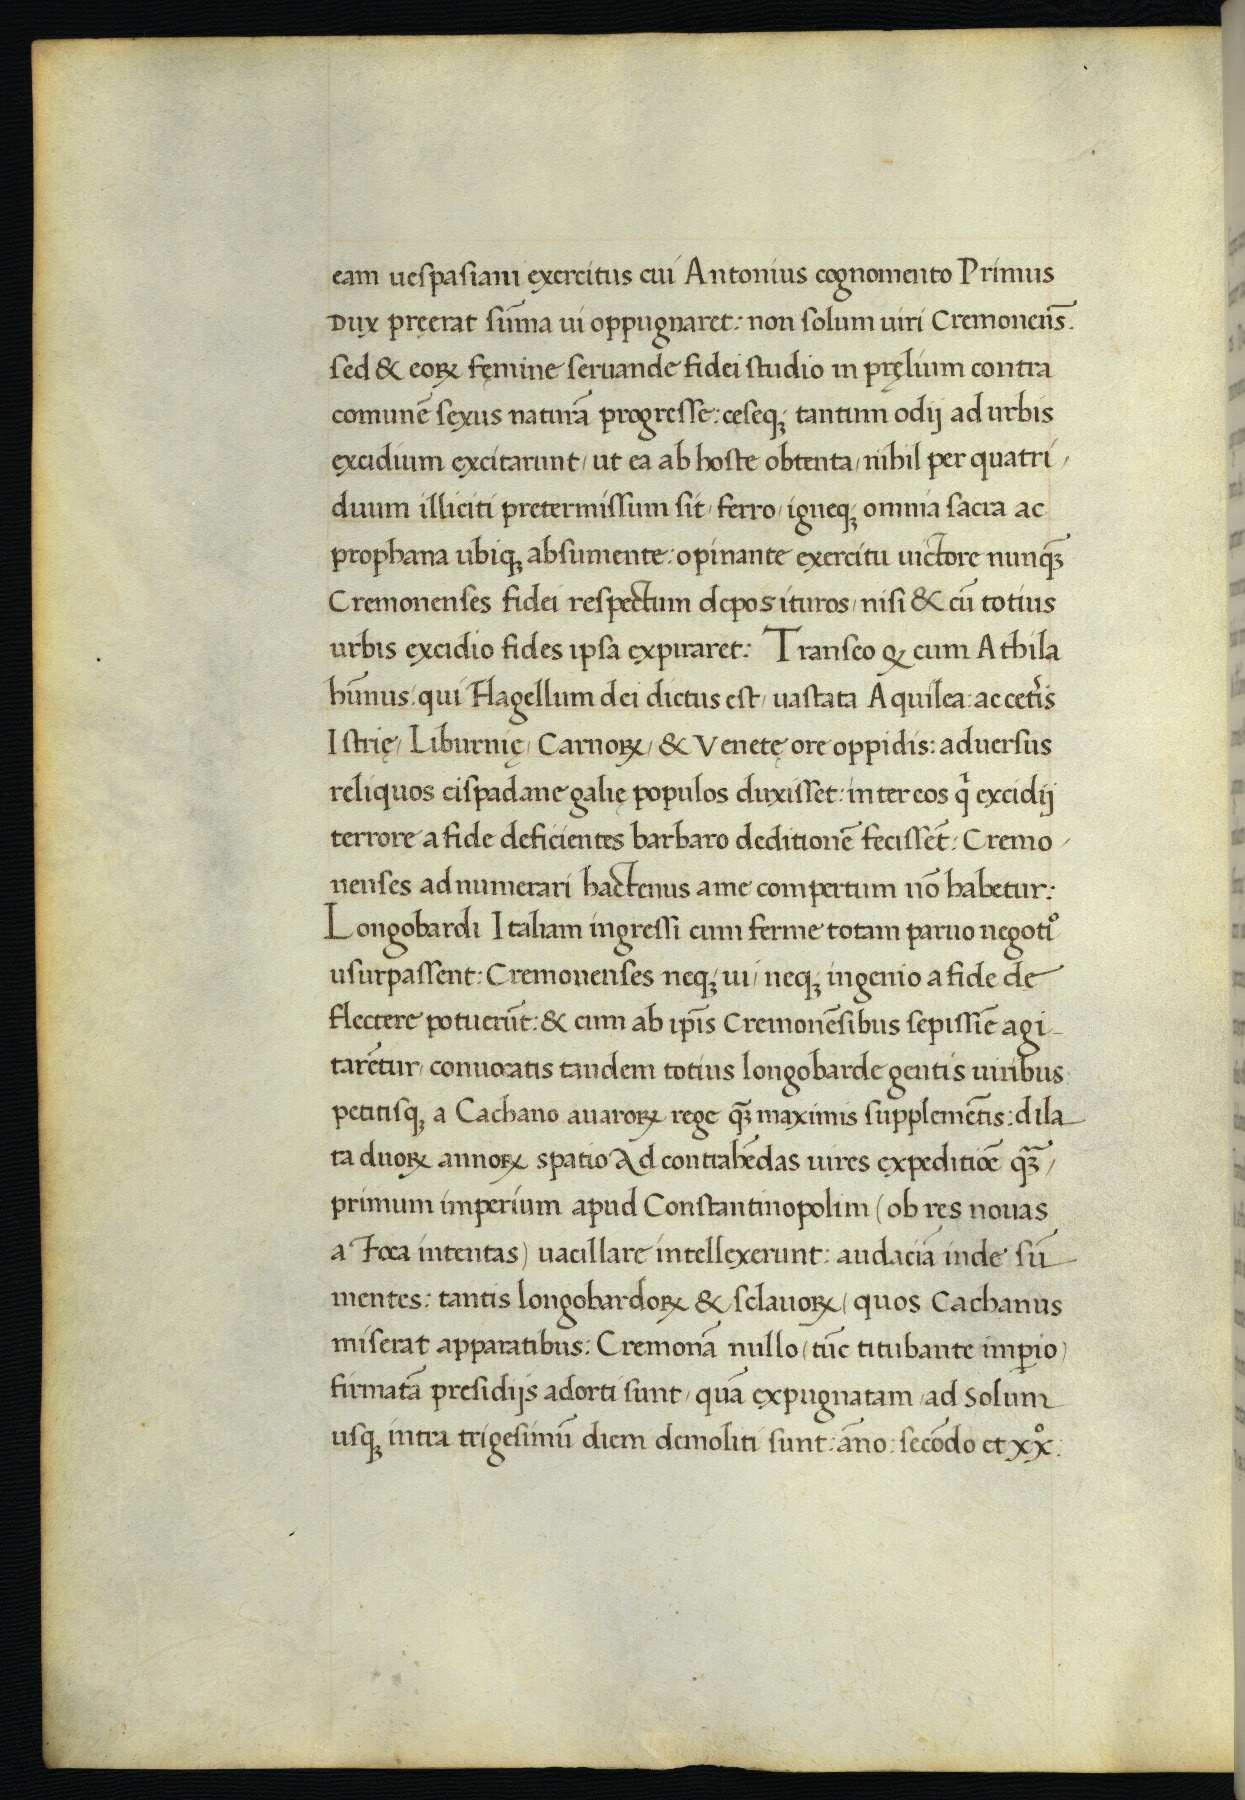 eam uespasiani exercitus cui Antonius cognomento Primus
Dux pręerat sum̄a ui oppugnaret: non solum uiri Cremonens̄.
sed & eoꝝ fęmine seruande fidei studio in pręlium contra
comunē sexus naturā progresse: cęseqꝫ tantum odij ad urbis
excidium excitarunt / ut ea ab hoste obtenta / nihil per quatri /
duum illiciti pretermissum sit / ferro / igneqꝫ omnia sacra ac
prophana ubiqꝫ absumente: opinante exercitu uictore nunqꝫ̄
Cremonenses fidei respectum deposituros / nisi & cū totius
urbis excidio fides ipsa expiraret: Transeo ꝙ cum Athila
hūnnus / qui Flagellum dei dictus est / uastata Aquilea: ac cet̄is
Istrię / Liburnię / Carnoꝝ / & Venetę ore oppidis: aduersus
reliquos cispadane galię populos duxisset: inter eos qͥ excidij
terrore a fide deficientes barbaro deditionē fecissēt: Cremo /
nenses adnumerari hactenus a me compertum nō habetur:
Longobardi Italiam ingressi cum ferme totam paruo negotiͦ
usurpassent: Cremonenses neqꝫ / ui / neqꝫ ingenio a fide de
flectere potuerūt: & cum ab ip̄is Cremonēsibus sepissīe agi-
tarētur / conuocatis tandem totius longobarde gentis uiribus
petitisqꝫ a Cachano auaroꝝ rege qꝫ̄ maximis supplemētis: dila-
ta duoꝝ annoꝝ spatio Ad contrahēdas uires expeditiōe qꝫ̄ /
primum imperium apud Constantinopolim (ob res nouas
a Foca intentas) uacillare intellexerunt: audaciā inde sū-
mentes: tantis longobardoꝝ & sclauoꝝ (quos Cachanus
miserat apparatibus: Cremonā nullo (tūc titubante imꝑio)
firmatā presidijs adorti sunt / quā expugnatam / ad Solum
usqꝫ intra trigesimū diem demoliti sunt: āno: secōdo et xxͦ.